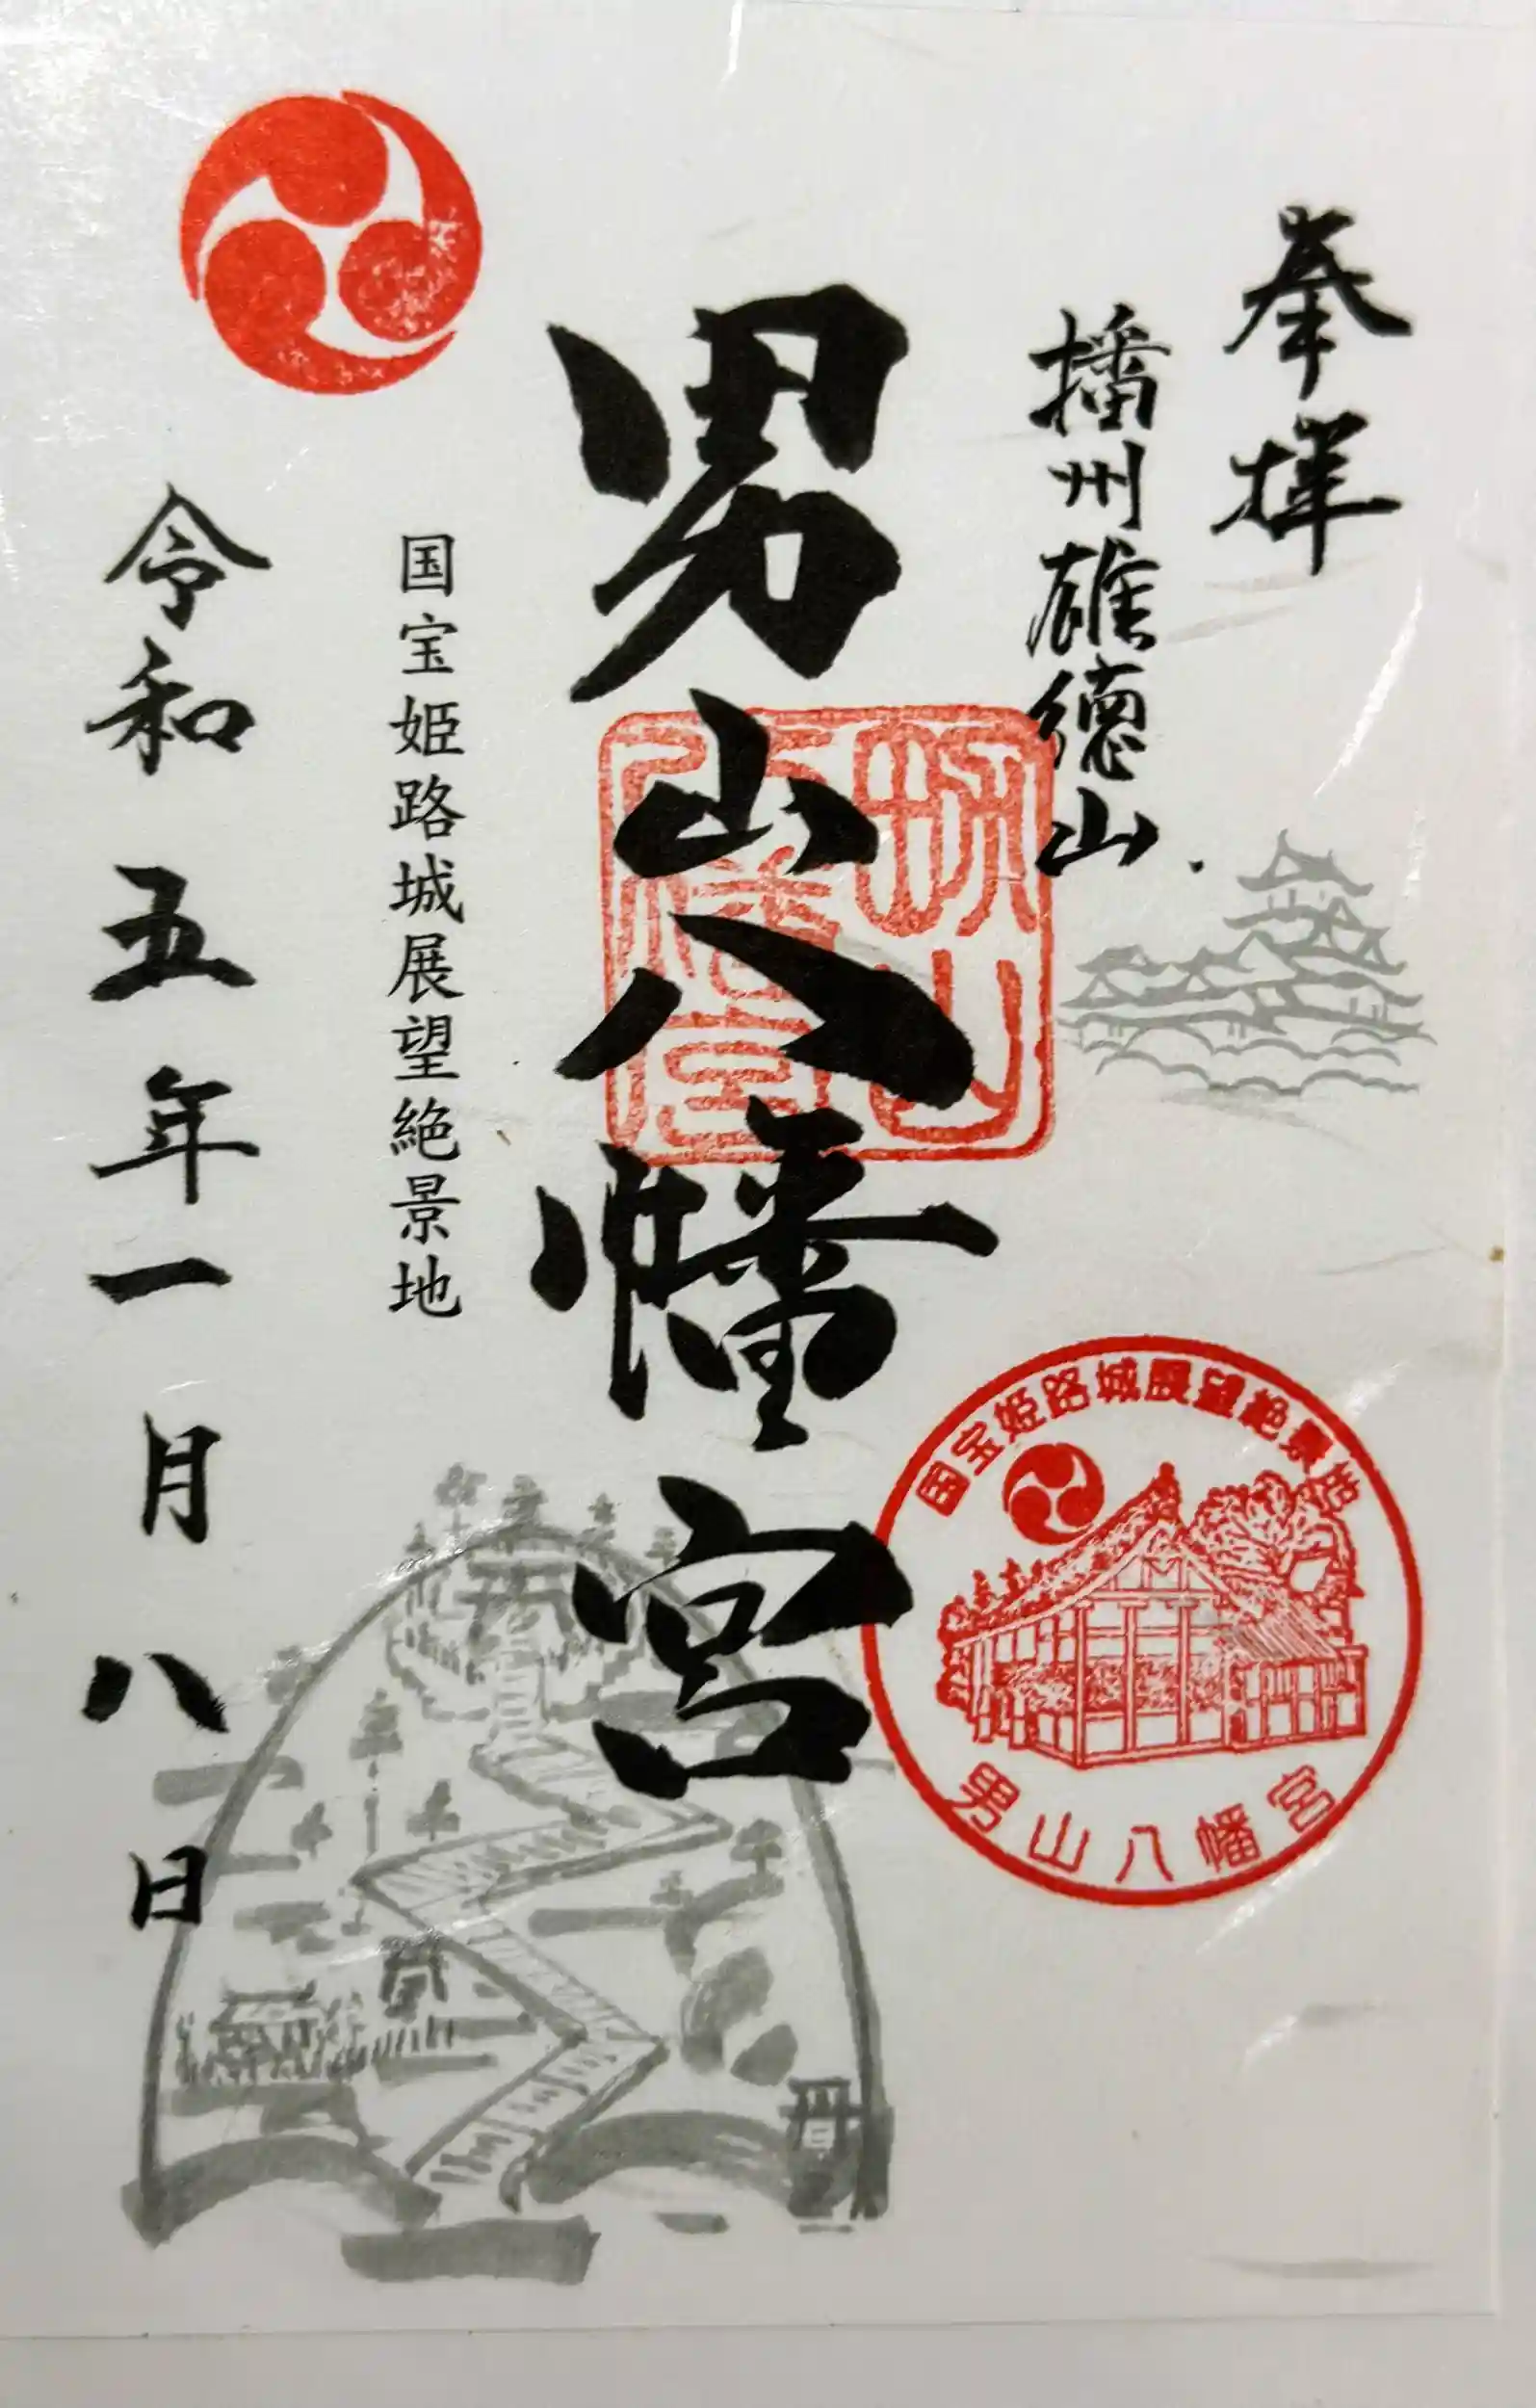 奉拝
播州雄德山
男山八幡宮
国宝姫路城展望絶景地
令和五年一月八日
国宝姫路城展望絶景地
男山八幡宮